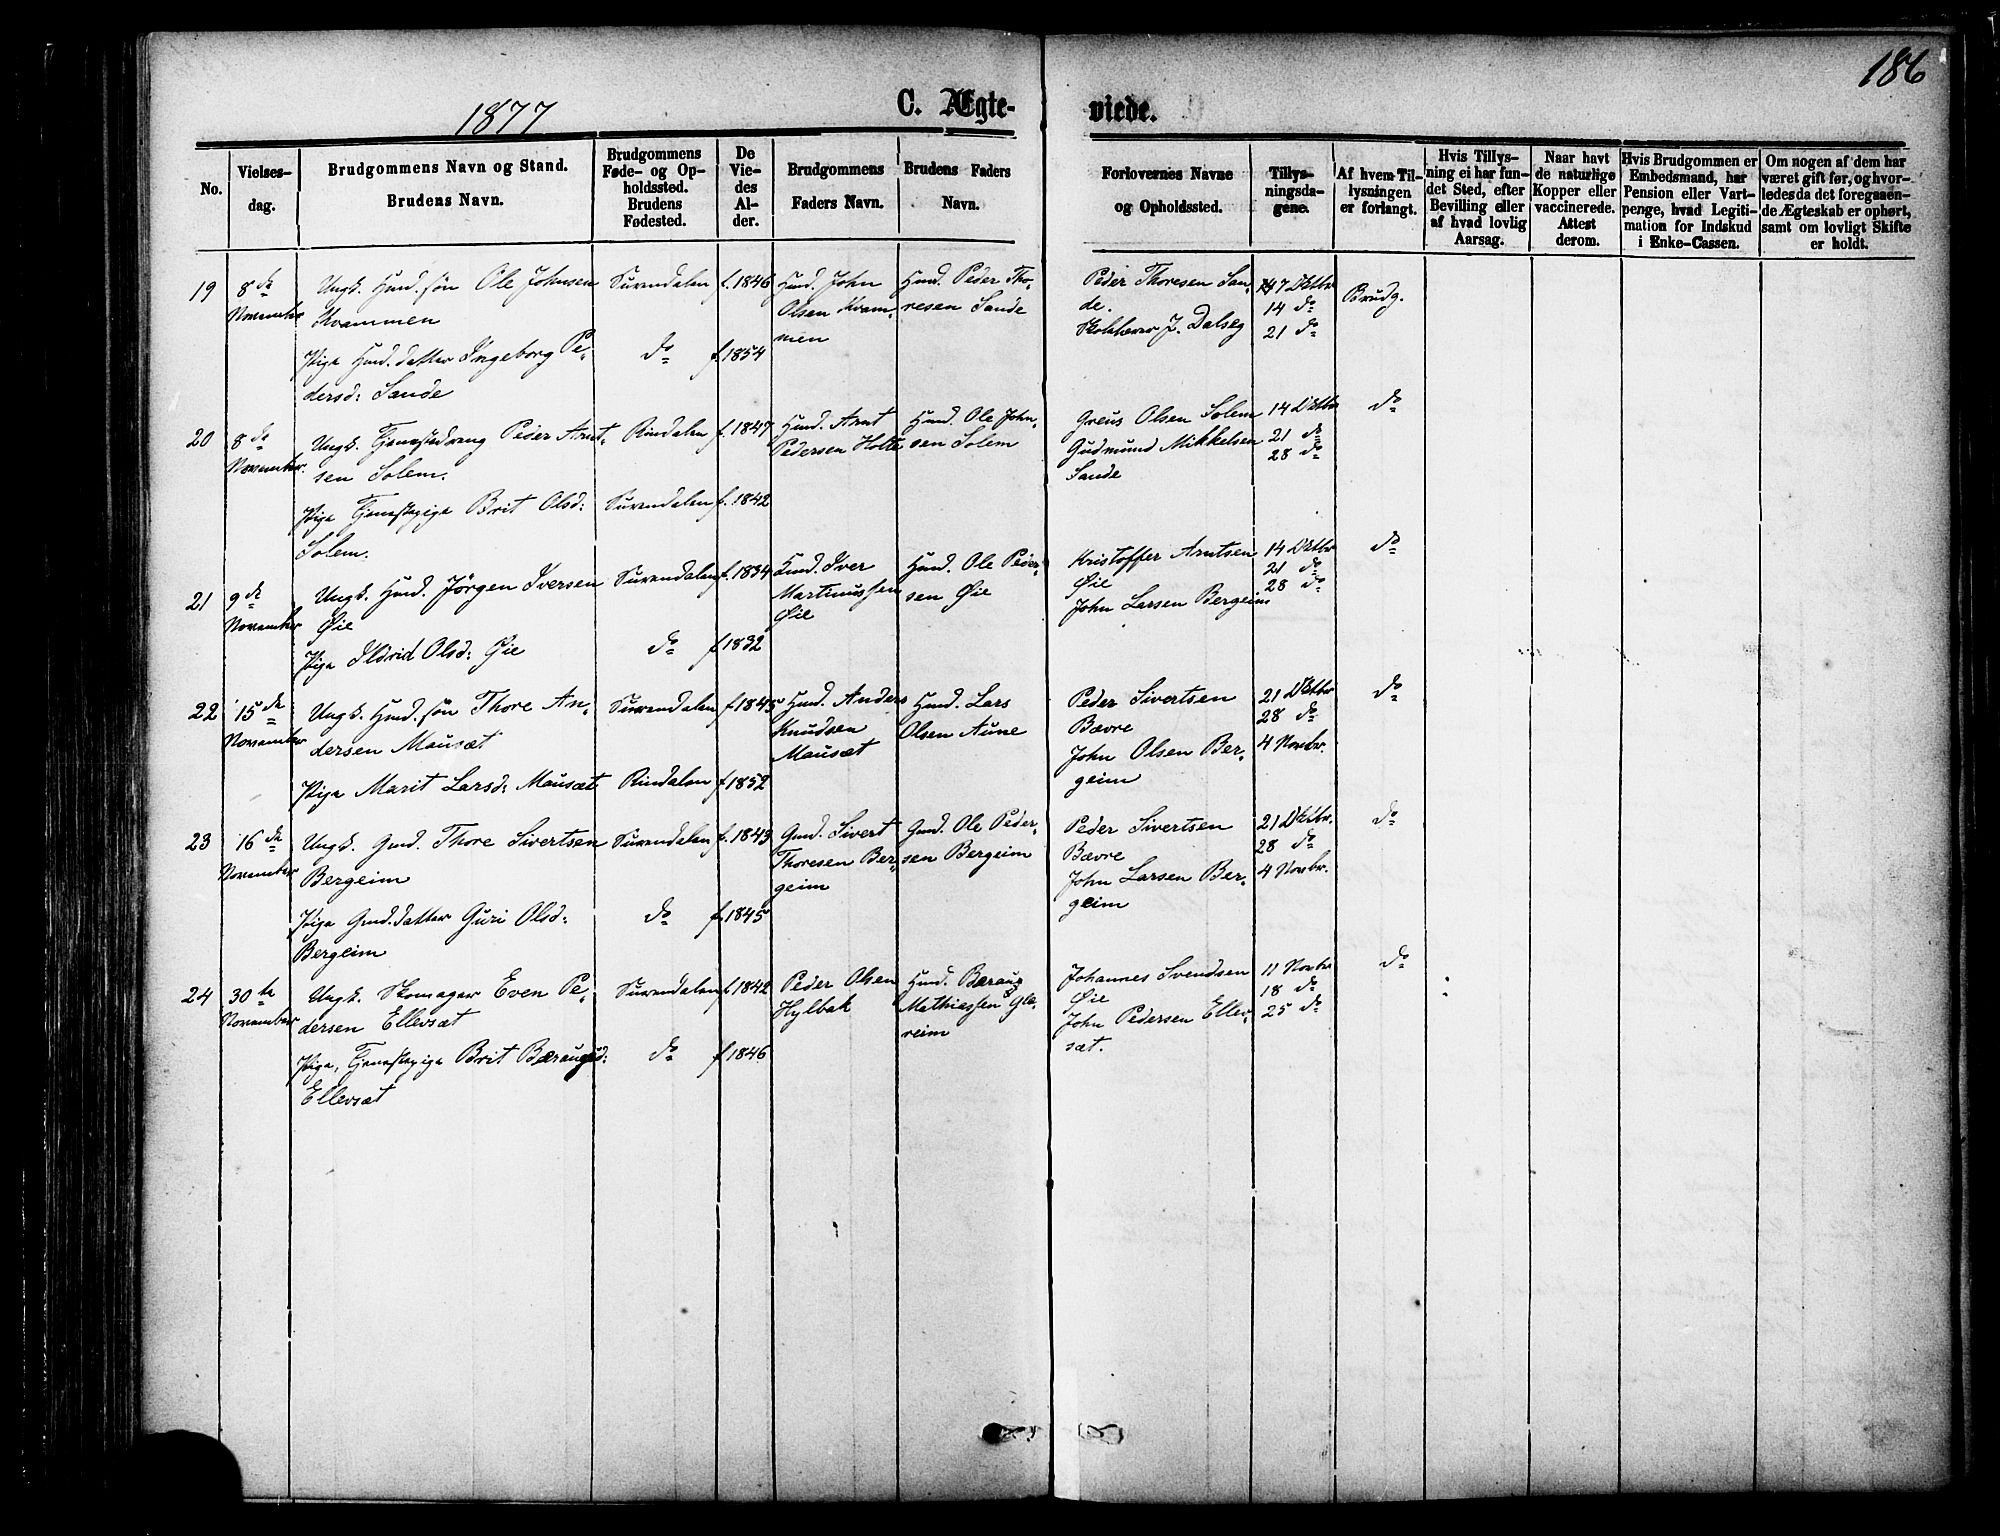 186
1877
C. Ægte-
viede.
No.
Vielses-
dag.
Brudgommens Navn og Stand.
Brudens Navn.
Brudgommens
Føde- og Op-
holdssted.
Brudens
Fødested.
De
Vie-
des
Al-
der.
Brudgommens
Faders Navn.
Brudens Faders
Navn.
Forlovernes Navne
og Opholdssted.
Tillys-
ningsda-
gene.
Af hvem Til-
lysningen
er forlangt.
Hvis Tillys-
ning ei har fun-
det Sted, efter
Bevilling eller
af hvad lovlig
Aarsag.
Naar havt
de naturlige
Kopper eller
vaccinerede.
Attest
derom.
Hvis Brudgommen er
Embedsmand, har
Pension eller Vart-
penge, hvad Legiti-
mation for Indskud
i Enke-Cassen.
Om nogen af dem har
været gift før, og hvor-
ledes da det foregaaen-
de Ægteskab er ophørt,
samt om lovligt Skifte
er holdt.
19
8de
November
Ungk. Gmd. søn Ole Johnsen
Kvammen
Pige Gmd. datter Ingeborg Pe-
dersd: Sande
Surendalen
do
f. 1846
f. 1854
Gmd. John
Olsen Kvam-
men
Gmd. Peder Tho-
resen Sande
Peder Thoresen San-
de.
J. Dalseg
7 Oktbr
14 do
21 do
Brudg.
20
8de
November.
Ungk. Tjenestedreng Peder Arnt-
sen Solem.
Pige Tjenestepige Brit Olsd:
Solem.
Rindalen
Surendalen
f. 1847
f. 1842
Gmd. Arnt
Pedersen Holte
Gmd. Ole John-
sen Solem
Greus Olsen Solem
Gudmund Mikkelsen
Sande
14 Oktbr
21 do
28 do
do
21
9de
November
Ungk. Gmd. Jörgen Iversen
Øie
Pige Ildrid Olsd: Øie
Surendalen
do
f. 1834
f. 1832
Gmd. Iver
Martinussen
Øie
Gmd. Ole Peder-
sen Øie
Kristoffer Arntsen
Øie
John Larsen Bergeim
14 Oktbr
21 do
28 do
do
22
15de
November
Ungk. Gmd. søn Thore An-
dersen Mausæt
Pige Marit Larsd: Mausæt
Surendalen
Rindalen
f. 1845
f. 1852
Gmd. Anders
Knudsen
Mausæt
Gmd. Lars
Olsen Aune
Peder Sivertsen
Bævre
John Olsen Ber-
geim
21 Oktbr
28 do
4 Novbr.
do
23
16de
November
Ungk. Gmd. Thore Sivertsen
Bergeim
Pige Gmd. datter Guri Olsd:
Bergeim
Surendalen
do
f. 1843
f. 1845
Gmd. Sivert
Thoresen Ber-
geim
Gmd. Ole Peder-
sen Bergeim
Peder Sivertsen
Bævre
John Larsen Ber-
geim
21 Oktbr.
28 do
4 Novbr.
do
24
30te
November
Ungk. Skomager Even Pe-
dersen Ellevsæt
Pige, Tjenestepige Brit Bæraugsd:
Ellevsæt
Surendalen
do
f. 1842
f. 1846
Peder Olsen
Hylbak
Gmd. Bæraug
Mathiassen Glæ-
reim
Johannes Svendsen
Øie
John Pedersen Ellev-
sæt.
11 Novbr
18 do
25 do
do